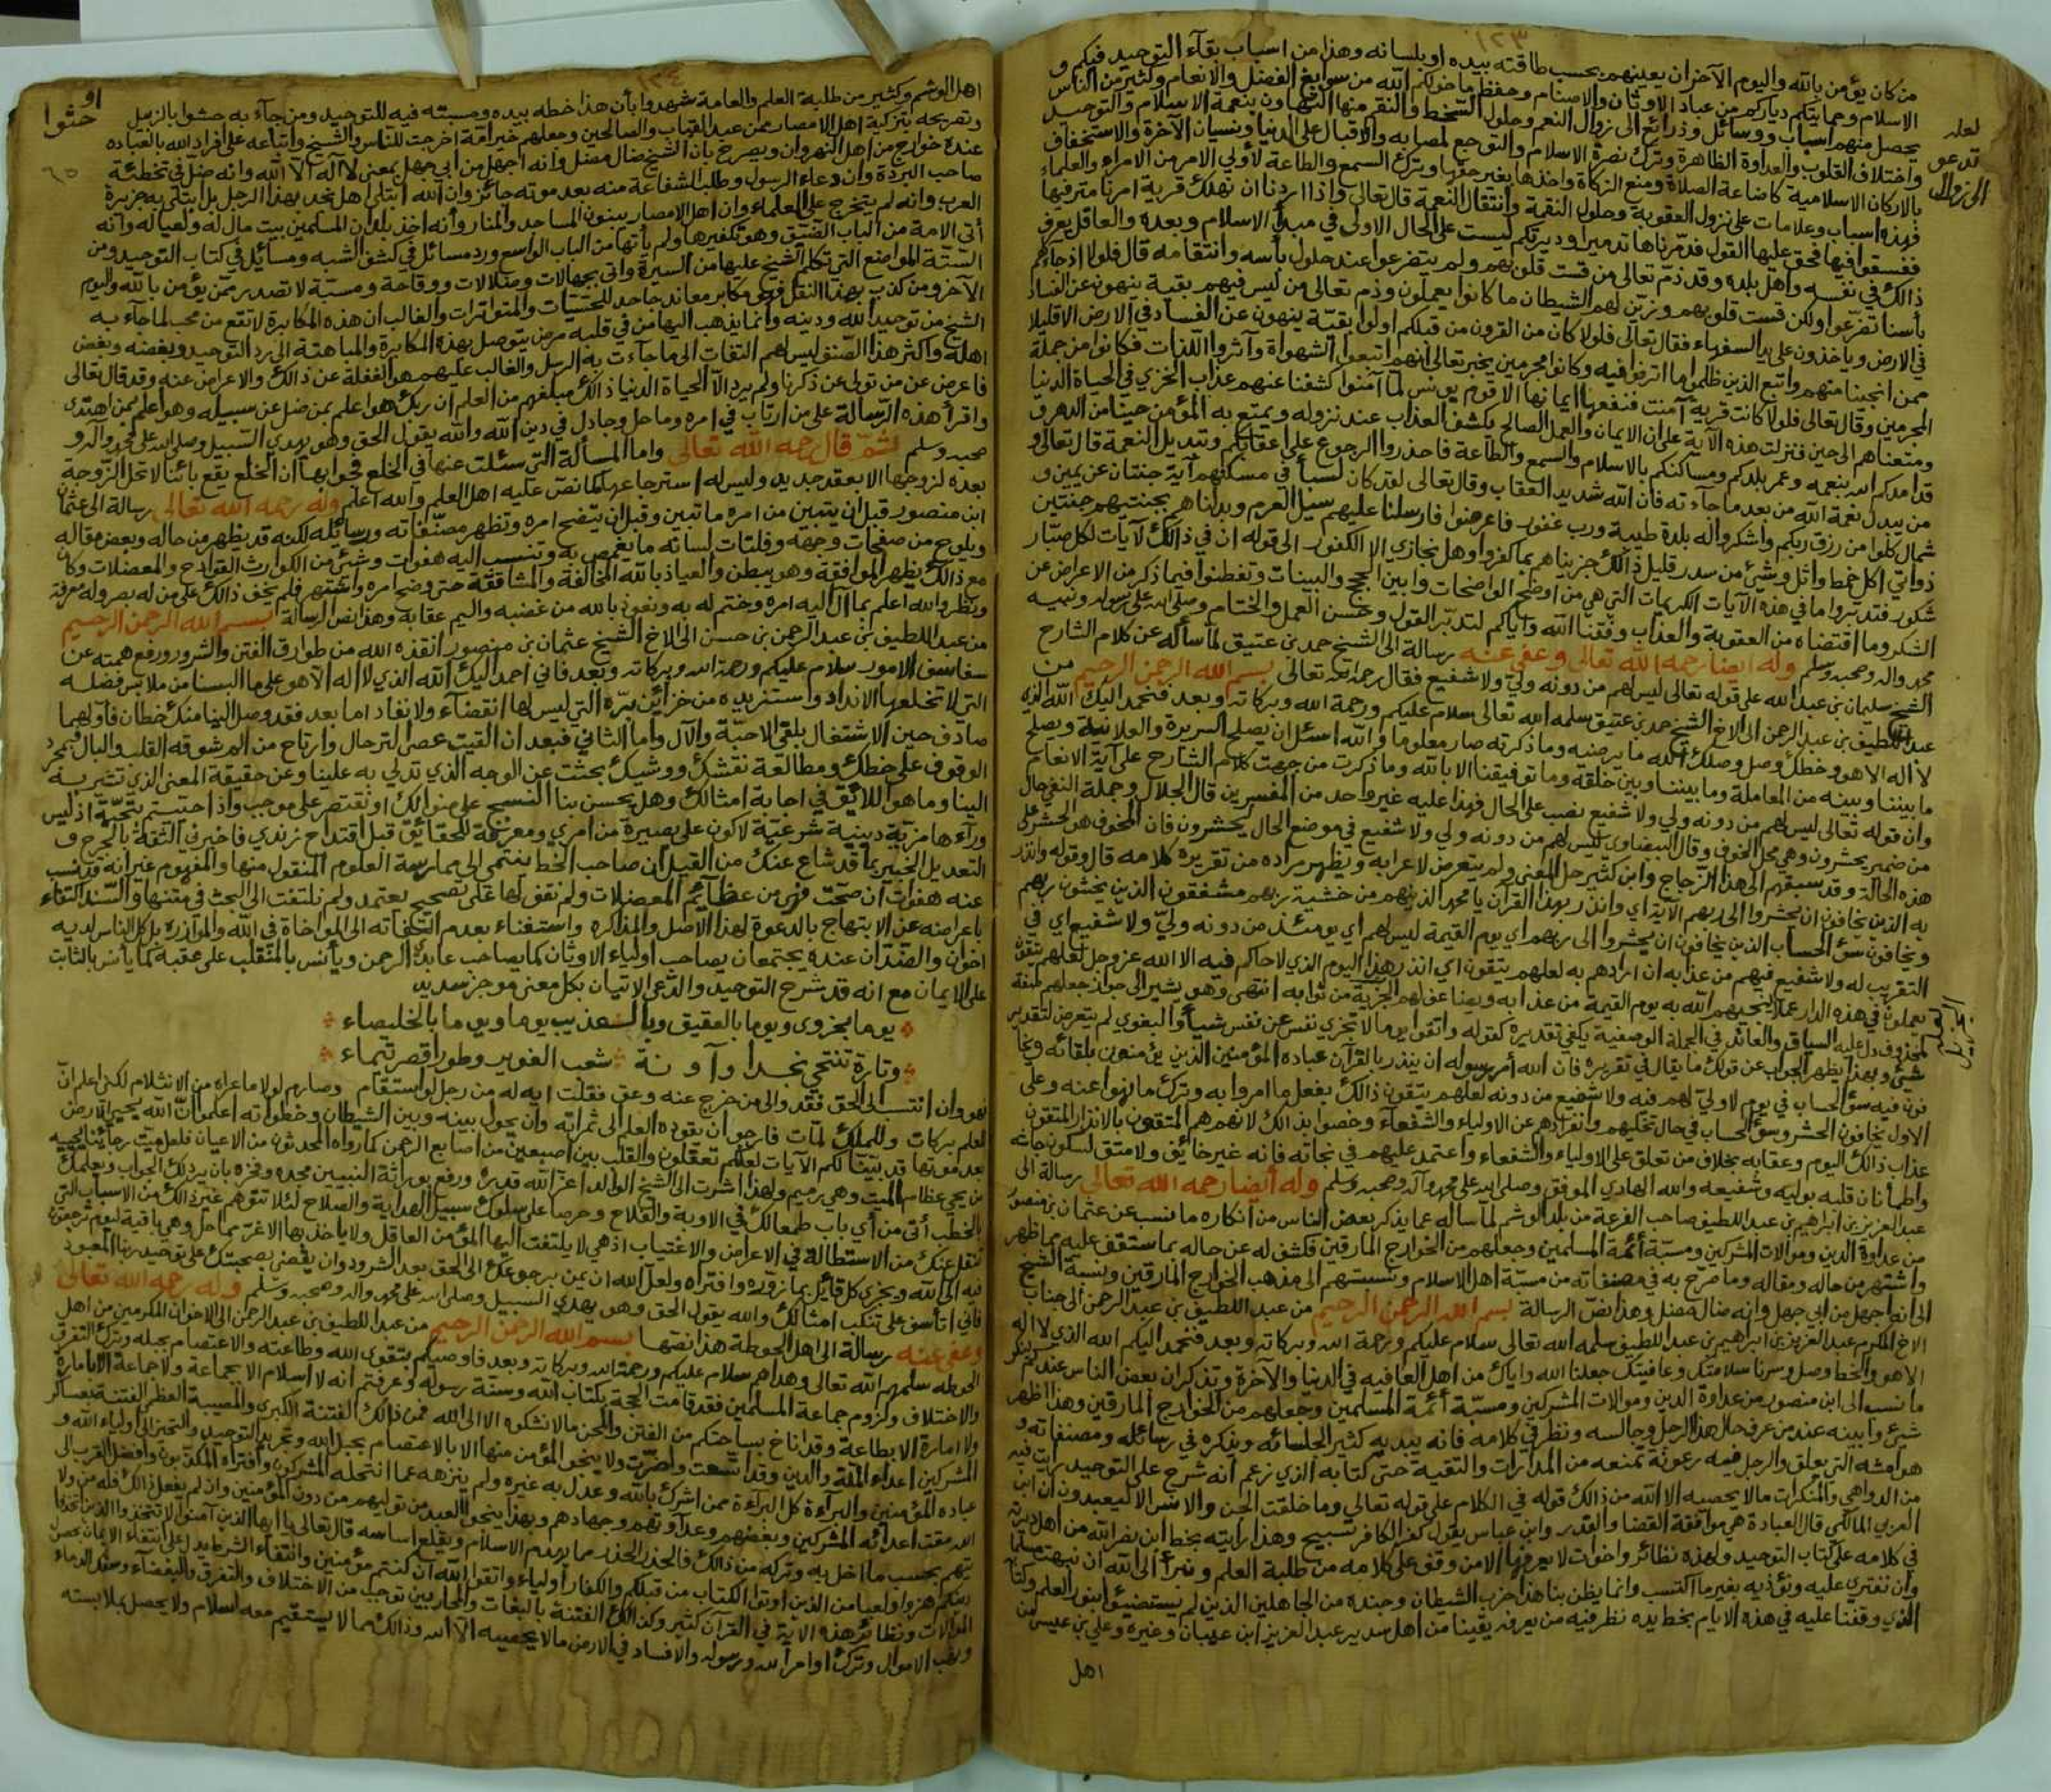 ١٢٣
من كان يؤمن بالله واليوم الآخر ان يعينهم بحسب طاقته بيده او بلسانه وهذا من اسباب بقآء التوحيد فيكم و
الاسلام وحمايتكم دياركم من عباد الاوثان والاصنام وحفظ ما خولكم الله من سوابغ الفضل والانعام وكثير من الناس
يحصل منهم اسباب ووسائل وذرائع الى زوال النعم وحلول السخط والنقم منها التهاون بنعمة الاسلام والتوحيد
واختلاف القلوب والعداوة الظاهرة وترك نصرة الاسلام والتوجع لمصابه والاقبال على الدنيا ونسيان الآخرة والاستخفاف
بالاركان الاسلامية كاضاعة الصلاة ومنع الزكاة واخذها بغير حقها وترك السمع والطاعة لأولي الامر من الامراء والعلماء
فهذه اسباب وعلامات على نزول العقوبة وحلول النقمة وانتقال النعمة قال تعالى واذا اردنا ان نهلك قرية امرنا مترفيها
ففسقوا فيها فحق عليها القول فدمرناها تدميرا ليست على الحال الاولى في مبدأ الاسلام وبعده والعاقل يعرف
ذالك في نفسه واهل بلده وقد ذم تعالى من قست قلوبهم ولم يتضرعوا عند حلول بأسه وانتقامه قال فلولا اذ جاءهم
بأسنا تضرعوا ولكن قست قلوبهم وزين لهم الشيطان ما كانوا يعملون وذم تعالى من ليس فيهم بقية ينهون عن الفساد
في الارض وياخذون على يد السفهاء فقال تعالى فلولا كان من القرون من قبلكم اولوا بقية ينهون عن الفساد في الارض الا قليلا
ممن انجينا منهم واتبع الذين ظلموا ما اترفوا فيه وكانوا مجرمين يخبر تعالى انهم اتبعوا الشهواة وآثروا اللذات فكانوا من جملة
المجرمين وقال تعالى فلولا كانت قرية آمنت فنفعها ايمانها الا قوم يونس لما آمنوا كشفنا عنهم عذاب الخزي في الحياة الدنيا
ومتعناهم الى حين فنزلت هذه الآية على ان الايمان والعمل الصالح يكشف العذاب عند نزوله ويمتع به المؤمن حينا من الدهر
قد امدكم الله بنعمه وعمر بلدكم ومساكنكم بالاسلام والسمع والطاعة فاحذروا الرجوع على اعقابكم وتبديل النعمة قال تعالى و
من يبدل نعمة الله من بعد ما جآءته فان الله شديد العقاب وقال تعالى لقد كان لسبأ في مسكنهم آية جنتان عن يمين و
شمال كلوا من رزق ربكم واشكروا له بلدة طيبة ورب غفور فاعرضوا فارسلنا عليهم سيل العرم وبدلناهم بجنتيهم جنتين
ذواتي اكل خمط واثل وشيء من سدر قليل ذالك جزيناهم بما كفروا وهل نجازي الا الكفور الى قوله ان في ذالك لآيات لكل صبار
شكور فتدبروا ما في هذه الآيات الكريمات التي هي من اوضح الواضحات وابين الحجج والبينات وتفطنوا فيما ذكر من الاعراض عن
الشكر وما اقتضاه من العقوبة والعذاب وفقنا الله واياكم لتدبر القول وحسن العمل والختام وصلى الله على رسوله ونبيه
محمد واله وصحبه وسلم وله ايضا رحمه الله تعالى وعفى عنه رسالة الى الشيخ حمد بن عتيق لما سأله عن كلام الشارح
الشيخ سليمان بن عبد الله على قوله تعالى ليس لهم من دونه ولي ولا شفيع فقال رحمه الله تعالى بسم الله الرحمن الرحيم من
عبد اللطيف بن عبد الرحمن الى الاخ الشيخ حمد بن عتيق سلمه الله تعالى سلام عليكم ورحمة الله وبركاته وبعد فنحمد اليك الله الذي
لا اله الا هو وخطك وصل وصلك الله ما يرضيه وما ذكرته صار معلوما والله اسئل ان يصلح السريرة والعلانية ويصلح
ما بيننا وبينه من المعاملة وما بيننا وبين خلقه وما توفيقنا الا بالله وما ذكرت من جهت كلام الشارح على آية الانعام
وان قوله تعالى ليس لهم من دونه ولي ولا شفيع نصب على الحال فهذا عليه غير واحد من المفسرين قال الجلال وجملة النفي حال
من ضمير يحشرون وهي محل الخوف وقال البيضاوي ليس لهم من دونه ولي ولا شفيع في موضع الحال ليحشرون فان المخوف هو الحشر على
هذه الحالة وقد سبقهم الى هذا الزجاج وابن كثير حل المعنى ولم يتعرض لاعرابه ويظهر مراده من تقريره كلامه قال وقوله وانذر
به الذين يخافون ان يحشروا الى ربهم الآية اي وانذر بهذا القرآن يا محمد الذينهم من خشية ربهم مشفقون الذين يخشون ربهم
ويخافون سؤ الحساب الذين يخافون ان يحشروا الى ربهم اي يوم القيمة ليس لهم اي يومئذ من دونه ولي ولا شفيع اي
التقريب له ولا شفيع فيهم من عذابه ان ارادهم به لعلهم يتقون اي انذر هذا اليوم الذي لا حاكم فيه الا الله عز وجل لعلهم يتقون
فيعملون في هذه الدار عملا ينجيهم الله به يوم القيمة من عذابه ويضاعف لهم الجزية من ثوابه انتهى وهو يشير الى جواز جعلها صفة
لمحذوف دل عليه السياق والعائد في الجملة الوصفية يكفي تقديره كقوله واتقوا يوما لا تجزي نفس عن نفس شيأ والبغوي لم يتعرض لتقدير
شيء وبهذا يظهر الجواب عن قولك ما يقال في تقريره فان الله أمر رسوله ان ينذر بالقرآن عباده المؤمنين الذين يؤمنون بلقائه ويخا
فون فيه سؤ الحساب في يوم لا ولي لهم فيه ولا شفيع من دونه لعلهم يتقون ذالك بفعل ما امروا به وترك ما نهوا عنه وعلى
الاول يخافون الحشر وسؤ الحساب في حال تخليهم وانفرادهم عن الاولياء والشفعآء وخصوا بذالك لانهم هم المتقون بالانذار المتقون
عذاب ذالك اليوم وعقابه بخلاف من تعلق على الاولياء والشفعاء واعتمد عليهم في نجاته فانه غير خايف ولا متق لسكون جاشه
واطمأنان قلبه بوليه وشفيعه والله الهادي الموفق وصلى الله على محمد وآله وصحبه وسلم وله أيضا رحمه الله تعالى رسالة الى
عبد العزيز بن ابراهيم بن عبد اللطيف صاحب الفرعة من بلد الوشم لما ساله عما يذكر بعض الناس من انكاره ما نسب عن عثمان بن منصور
من عداوة الدين وموالات المشركين ومسبة أئمة المسلمين وجعلهم من الخوارج المارقين فكشف له عن حاله بما ستقف عليه مما ظهر
واشتهر من حاله ومقاله وما صرح به في مصنفاته من مسبة اهل الاسلام ونسبتهم الى مذهب الخوارج المارقين ونسبة الشيخ
الى انه اجهل من ابي جهل وانه ضال مضل وهذا نص الرسالة بسم الله الرحمن الرحيم من عبد اللطيف بن عبد الرحمن الى جناب
الاخ المكرم عبد العزيز بن ابراهيم بن عبد اللطيف سلمه الله تعالى سلام عليكم ورحمة الله وبركاته وبعد فنحمد اليكم الله الذي لا اله
الا هو والخط وصل وسرنا سلامتك وعافيتك جعلنا الله واياك من اهل العافيه في الدنيا والآخرة وتذكر ان بعض الناس عندكم ينكر
ما نسب الى ابن منصور من عداوة الدين وموالات المشركين ومسبة أئمة المسلمين وجعلهم من الخوارج المارقين وهذا اظهر
شيء وابينه عند من عرف حال هذا الرجل وجالسه ونظر في كلامه فانه يبديه كثير الجلسائه ويذكره في رسائله ومصنفاته و
هوامشه التي يعلق والرجل فيه رعونة تمنعه من المدارات والتقية حتى كتابه الذي زعم انه شرح على التوحيد رايت فيه
من الدواهي والمنكرات مالا يحصيه الا الله من ذالك قوله في الكلام على قوله تعالى وما خلقت الجن والانس الا ليعبدون ان ابن
العربي المالكي قال العبادة هي موافقة القضا والقدر وابن عباس يقول كفر الكافر تسبيح وهذا رايته بخط ابن نصر الله من اهل سدير
في كلامه على كتاب التوحيد ولهذه نظائر واخوات لا يعرفها الا من وقف على كلامه من طلبة العلم ونبرأ الى الله ان نبهت مسلما
وان نفتري عليه ونؤذيه بغير ما اكتسب وانما يظن بنا هذا حزب الشيطان وجنده من الجاهلين الذين لم يستضيئوا بنور العلم وكتابه
الذي وقفنا عليه في هذه الايام بخط يده نظر فيه من يعرفه يقينا من اهل سدير عبد العزيز ابن عيبان وغيره وعلي بن عيسى من
اهل
لعله
تدعو
الى زوال
١٢٤
اهل الوشم وكثير من طلبة العلم والعامة شهدوا بأن هذا خطه بيده ومسبته فيه للتوحيد ومن جآء به حشوا بالزبيل
وتصريحه بتزكية اهل الامصار ممن عبد القباب والصالحين وجعلهم خير امة اخرجت للناس والشيخ واتباعه على افراد الله بالعباده
عنده خوارج من اهل النهروان ويصرح بان الشيخ ضال مضل وانه اجهل من ابي جهل بمعنى لا اله الا الله وانه ضل في تخطئة
صاحب البردة وان دعاء الرسول وطلب الشفاعة منه بعد موته جائز وان الله ابتلى اهل نجد بهذا الرجل بل ابتلى به جزيرة
العرب وانه لم يتخرج على العلماء وان اهل الامصار يبنون المساجد والمنار وأنه اخذ بلدان المسلمين بيت مال له ولعياله وانه
أتى الامة من الباب الضيق وهو تكفيرها ولم يأتها من الباب الواسع ورد مسائل في كشف الشبه ومسائل في كتاب التوحيد ومن
الستة المواضع التي تكلم الشيخ عليها من السيرة واتى بجهالات وضلالات ووقاحة ومسبة لا تصدر ممن يؤمن بالله واليوم
الآخر ومن كذب بهذا النقل فهو مكابر معاند جاحد للحسيات والمتواترات والغالب ان هذه المكابرة لا تقع من محب لما جآء به
الشيخ من توحيد الله ودينه وانما يذهب اليها من في قلبه مرض يتوصل بهذه المكابرة والمباهتة الى رد التوحيد وبغضه وبغض
اهله واكثر هذا الصنف ليس لهم التفات الى ما جآءت به الرسل والغالب عليهم هو الغفلة عن ذالك والاعراض عنه وقد قال تعالى
فاعرض عن من تولى عن ذكرنا ولم يرد الا الحياة الدنيا ذالك مبلغهم من العلم ان ربك هو اعلم بمن ضل عن سبيله وهو اعلم بمن اهتدى
واقرأ هذه الرسالة على من ارتاب في امره وماحل وجادل في دين الله والله يقول الحق وهو يهدي السبيل وصلى الله على محمد وآله و
صحبه وسلم ثم قال رحمه الله تعالى واما المسألة التي سئلت عنها في الخلع فجوابها ان الخلع يقع بائنا لا تحل الزوجة
بعده لزوجها الا بعقد جديد وليس له استرجاعها كما نص عليه اهل العلم والله اعلم وله رحمه الله تعالى رسالة الى عثمان
ابن منصور قبل ان يتبين من امره ما تبين وقبل ان يتضح امره وتظهر مصنفاته ورسائله لكنه قد يظهر من حاله وبعض مقاله
ويلوح من صفحات وجهه وفلتات لسانه ما يغمص به وتنسب اليه هفوات وشيء من الكوارث القوادح والمعضلات وكان
مع ذالك يظهر الموافقة وهو يبطن والعياذ بالله المخالفة والمشاققة حتى وضح امره واشتهر فلم يخف ذالك على من له بصر وله معرفة
ونظر والله اعلم بما آل اليه امره وختم له به ونعوذ بالله من غضبه واليم عقابه وهذا نص الرسالة بسم الله الرحمن الرحيم
من عبد اللطيف بن عبد الرحمن بن حسن الى الاخ الشيخ عثمان بن منصور انقذه الله من طوارق الفتن والشرور ورفع همته عن
سفاسف الامور سلام عليكم ورحمة الله وبركاته وبعد فاني احمد اليك الله الذي لا اله الا هو على ما البسنا من ملابس فضله
التي لا تخلعها الانداد واستزيده من خزائن بره التي ليس لها انقضآء ولا نفاد اما بعد فقد وصل الينا منك خطان فاولهما
صادف حين الاشتغال بلقى الاحبة والآل واما الثاني فبعد ان القيت عصى الترحال وارتاح من الم شوقه القلب والبال فبمجرد
الوقوف على خطك ومطالعة نقشك ووشيك بحثت عن الوجه الذي تدلي به علينا وعن حقيقة المعنى الذي تشير به
الينا وما هو اللائق في اجابة امثالك وهل يحسن بنا النسج على منوالك او نقتصر على موجب واذا حييتم بتحية اذ ليس
ورآءها مزية دينية شرعية لاكون على بصيرة من امري ومعرفة للحقائق قبل اقتداح زندي فاخبرني الثقة بالجرح و
التعديل الخبير بما قد شاع عنك من القيل ان صاحب الخط ينتمي الى ممارسة العلوم المنقول منها والمفهوم غير انه قد نسب
عنه هفوات ان صحت فهي من عظآئم المعضلات ولم نقف لها على تصحيح يعتمد ولم نلتفت الى البحث في متنها والسند اكتفاء
باعراضه عن الابتهاج بالدعوة لهذا الاصل والمذاكره واستغناء بعدم التفاته الى المواخاة في الله والموآزره بل كل الناس لديه
اخوان والضدان عنده يجتمعان يصاحب اولياء الاوثان كما يصاحب عابد الرحمن ويأنس بالمنقلب على عقبه كما يأنس بالثابت
على الايمان مع انه قد شرح التوحيد وادعى الاتيان بكل معنى موجز سديد
يوما بحزوى ويوما بالعقيق وبا لعذيب يوما ويوما بالخليصاء
وتارة تنتحي نجدا وآونة شعب الغوير وطورا قصر تيماء
فهو وان انتسب الى الحق فقد والى من خرج عنه وعق فقلت ايه له من رجل لو استقام وصارم لولا ما عراه من الانثلام لكني اعلم ان
للعلم بركات وللملك لمات فارجو ان يقوده العلم الى ثمراته وان يحول بينه وبين الشيطان وخطواته اعلموا ان الله يحيي الارض
بعد موتها قد بينا لكم الآيات لعلكم تعقلون والقلب بين اصبعين من اصابع الرحمن كما رواه المحدثون من الاعيان فلعل ميت رجائنا يحييه
من يحي عظام الميت وهي رميم ولهذا اشرت الى الشيخ الوالد اعز الله قدره ورفع بوراثة النبيين مجده وفخره بان يرد لك الجواب ويعلمك
بالخطب أتى من أي باب طمعا لك في الاوبة والفلاح وحرصا على سلوك سبيل الهداية والصلاح لئلا تتوهم غير ذالك من الاسباب التي
تنقل عنك من الاستطالة في الاعراض والاغتياب اذ هي لا يلتفت اليها المؤمن العاقل ولا ياخذ بها الا غر مماحل وهي باقية ليوم ترجعون
فيه الى الله ويجزى كل قائل بما زوره وافتراه ولعل الله ان يمن برجوعك الى الحق بعد الشرود وان يقضى بصحبتك على توحيد ربنا المعبود
فاني اتأسف على تنكب امثالك والله يقول الحق وهو يهدي السبيل وصلى الله على محمد واله وصحبه وسلم وله رحمه الله تعالى
وعفى عنه رسالة الى اهل الحوطة هذا نصها بسم الله الرحمن الرحيم من عبد اللطيف بن عبد الرحمن الى الاخوان المكرمين من اهل
الحوطه سلمهم الله تعالى وهداهم سلام عليكم ورحمة الله وبركاته وبعد فاوصيكم بتقوى الله وطاعته والاعتصام بحبله وترك التفرق
والاختلاف ولزوم جماعة المسلمين فقد قامت الحجة بكتاب الله وسنة رسوله وعرفتم انه لا اسلام الا بجماعة ولا جماعة الا بامارة
ولا امارة الا بطاعة وقد اناخ بساحتكم من الفتن والمحن مالا نشكوه الا الى الله فمن ذالك الفتنة الكبرى والمصيبة العظمى الفتنة بعساكر
المشركين اعداء الملة والدين وقد اتسعت واضرت ولا ينجو المؤمن منها الا بالاعتصام بحبل الله وتجريد التوحيد والتحيز الى اولياء الله و
عباده المؤمنين والبرآءة كل البرآءة ممن اشرك بالله وعدل به غيره ولم ينزهه عما انتحله المشركون وافتراه المكذبون وافضل القرب الى
الله مقت اعدائه المشركين وبغضهم وعداوتهم وجهادهم وبهذا ينجو العبد من توليهم من دون المؤمنين وان لم يفعل ذالك فله من ولا
يتهم بحسب ما اخل به وتركه من ذالك فالحذر الحذر مما يهدم الاسلام ويقلع اساسه قال تعالى يا ايها الذين آمنوا لا تتخذوا الذين اتخذوا
دينكم هزوا ولعبا من الذين اوتوا الكتاب من قبلكم والكفار أولياء واتقوا الله ان كنتم مؤمنين وانتفاء الشرط يدل على انتفاء الايمان بحصول
الموالات ونظائر هذه الاية في القرآن كثير وكذالك الفتنة بالبغات والمحاربين توجب من الاختلاف والتفرق والبغضاء وسفك الدماء
ونهب الاموال وترك اوامر الله ورسوله والافساد في الارض مالا يحصيه الا الله وذالك مما لا يستقيم معه اسلام ولا يحصل بملابسته
او
حثوا